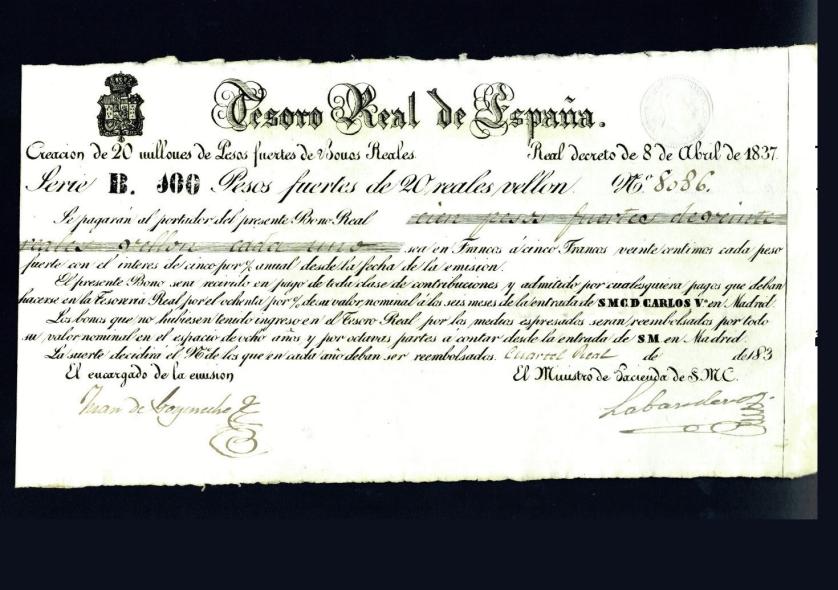 Tesoro Real de España.
Creacion de 20 millones de Pesos fuertes de Bonos Reales. Real decreto de 8 de Abril de 1837.
Serie B. 100 Pesos fuertes de 20 reales vellon. Nº 8086.
Se pagarán al portador del presente Bono Real cien pesos fuertes de veinte
reales vellon cada uno sea en Francos á cinco Francos veinte centimos cada peso
fuerte con el interes de cinco por % anual desde la fecha de la emision.
El presente Bono sera recivido en pago de toda clase de contribuciones y admitido por cualesquiera pagos que deban
hacerse en la Tesoreria Real por el ochenta por % de su valor nominal á los seis meses de la entrada de S M C D CARLOS Vº en Madrid.
Los bonos que no hubiesen tenido ingreso en el Tesoro Real por los medios espresados seran reembolsados por todo
su valor nominal en el espacio de ocho años y por octavas partes a contar desde la entrada de SM en Madrid.
La suerte decidirá el Nº de los que en cada año deban ser reembolsados. Cuartel Real de de 183
El encargado de la emision El Ministro de Hacienda de S.M.C.
Juan de Labandero